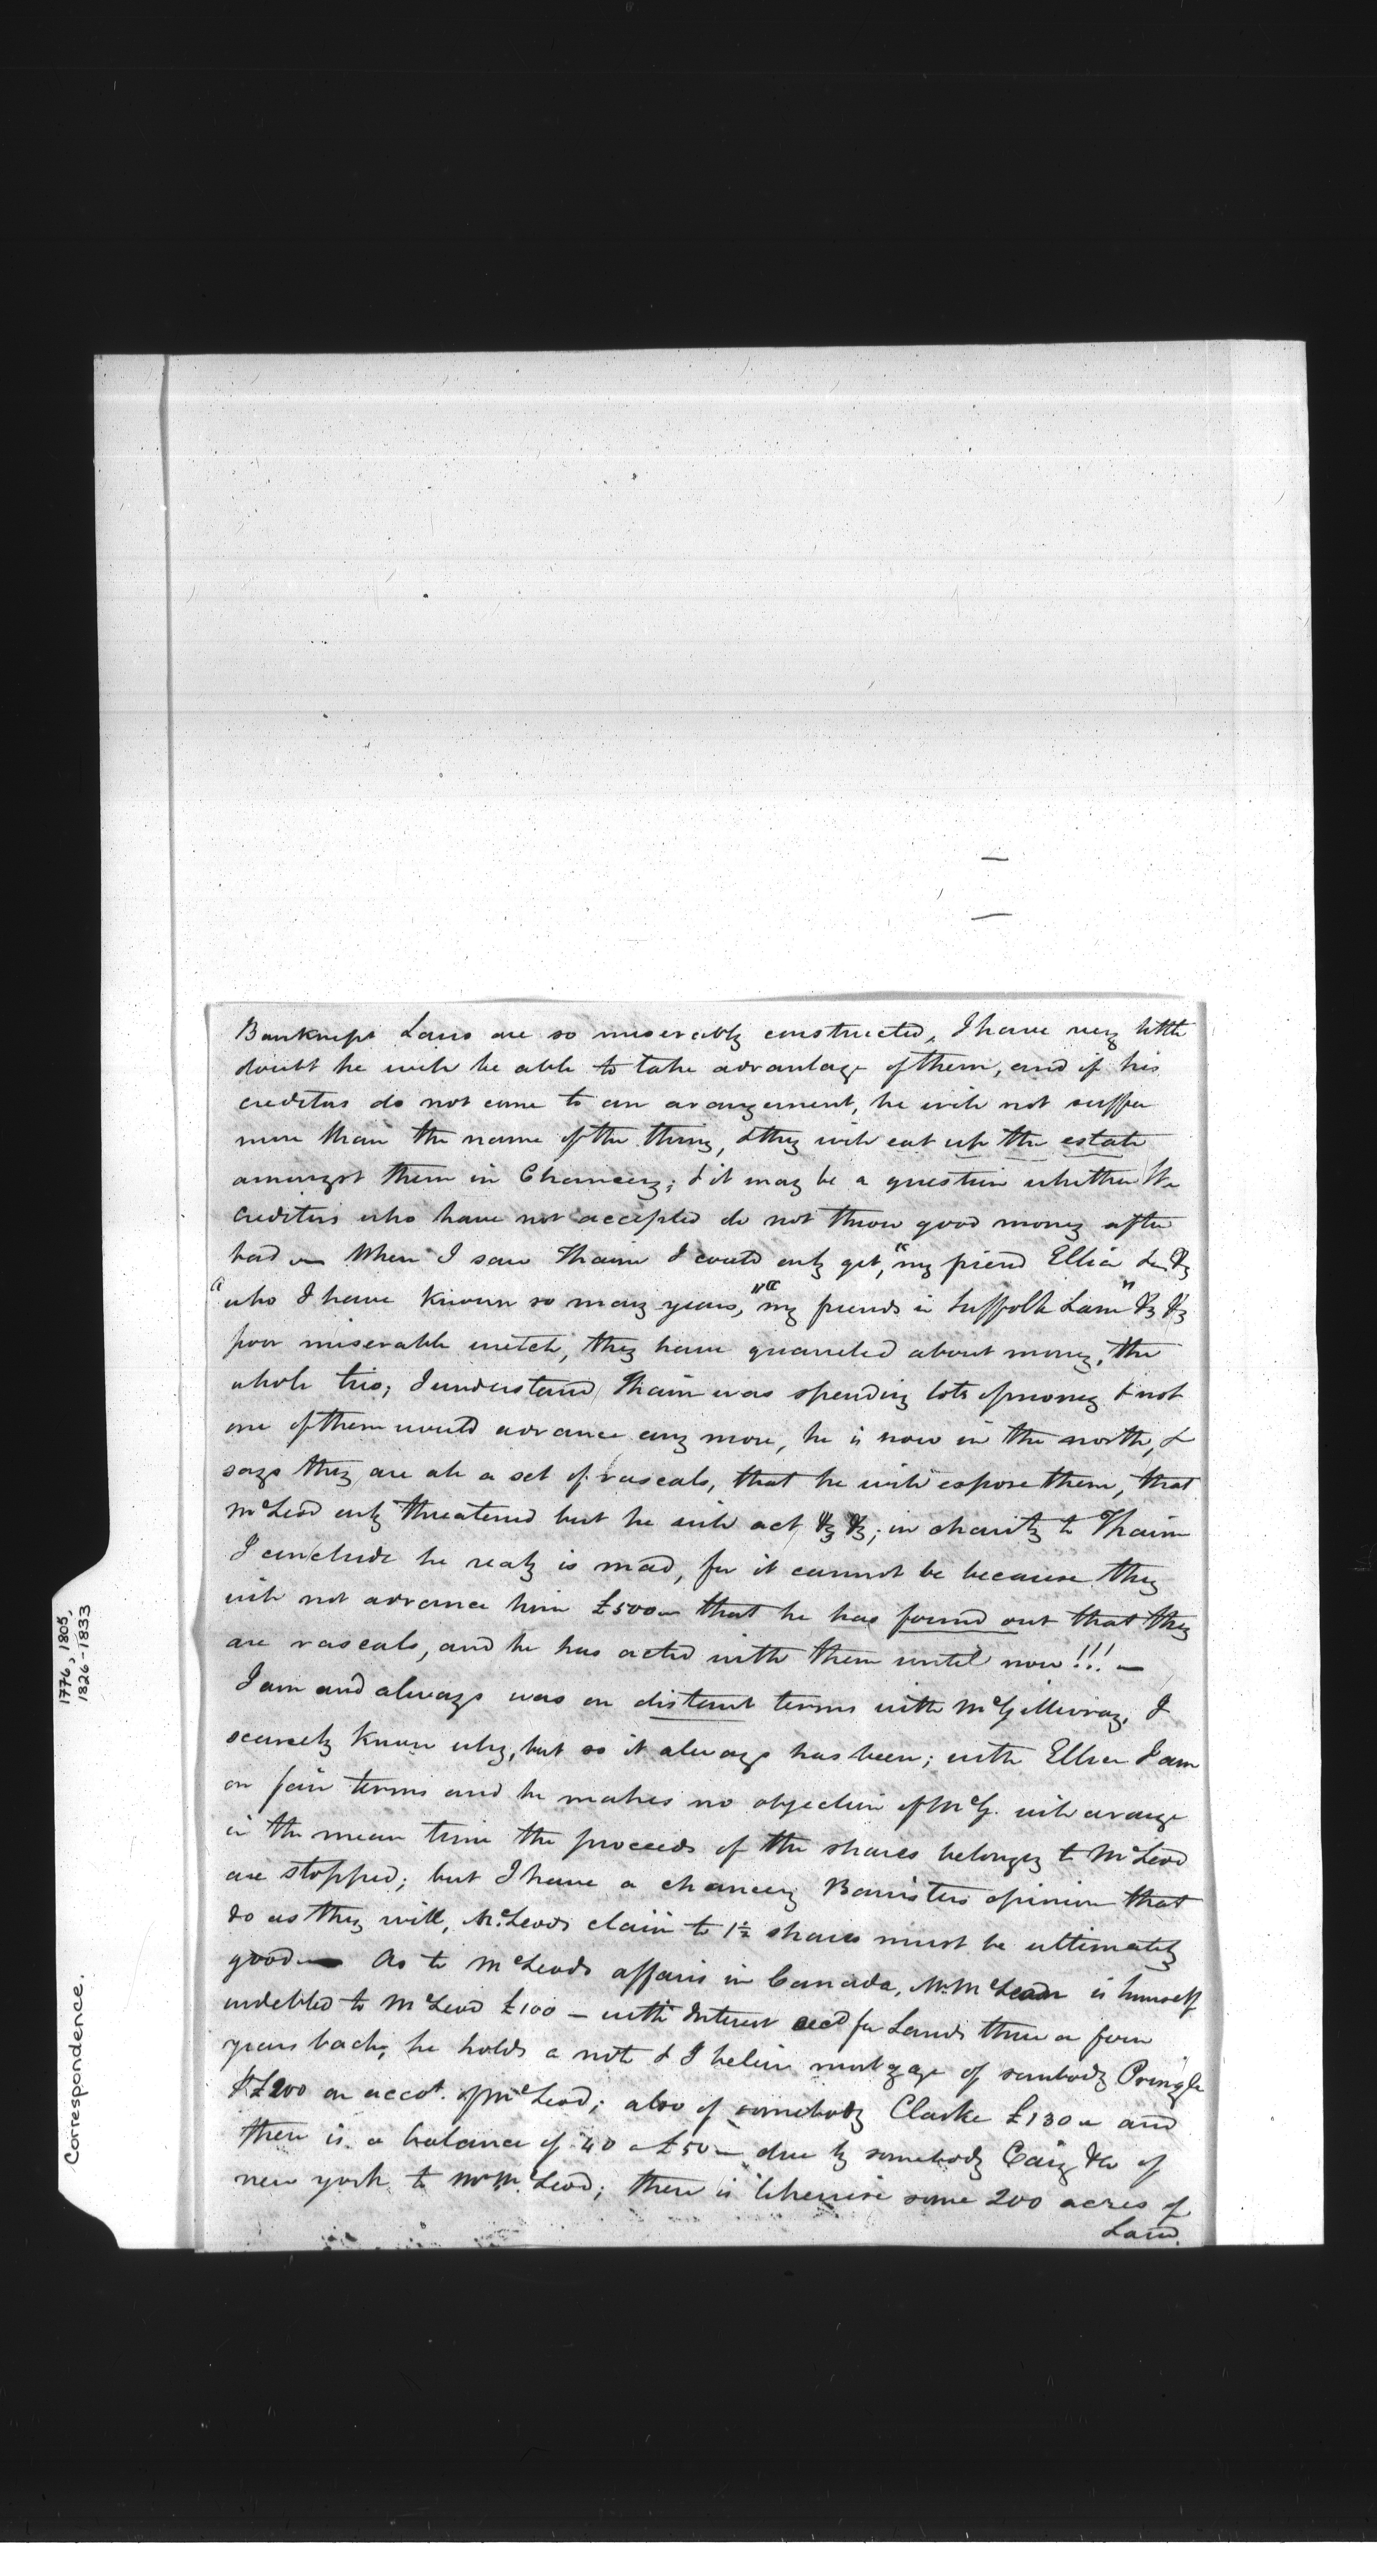 Bankrupt Laws are so miserably constructed, I have very little
doubt he will be able to take advantage of them, and if his
creditors do not come to an arangement, he will not suffer
more than the name of the thing, & they will eat up the estate
amongst them in Chancery; & it may be a question whether the
creditors who have not accepted do not throw good money after
bad — When I saw Thain I could only get, "my friend Ellice &c &c
"who I have known so many years," "my friends in Suffolk Lane" &c &c
poor miserable wretch, they have quarreled about money, the
whole trio; I understand Thain was spending lots of money & not
one of them would advance any more, he is now in the north, &
says they are all a set of rascals, that he will expose them, that
McLeod only threatened but he will act &c &c; in charity to Thain
I conclude he realy is mad, for it cannot be because they
will not advance him £500 — that he has found out that they
are rascals, and he has acted with them until now!!! —
I am and always was on distant terms with McGillivray, I
scarcely know why, but so it always has been; with Ellice I am
on fair terms and he makes no objection if McG. will arange
in the mean time the proceeds of the shares belonging to McLeod
are stopped; but I have a chancery Barristers opinion that
do as they will, McLeods claim to 1½ shares must be ultimately
good — As to McLeods affairs in Canada, Mr. McLean is himself
indebted to McLeod £100 — with Interest for Lands three or four
years back, he holds a note & I believe mortgage of somebody Pringle
£200 on accot. of McLeod; also of somebody Clarke £130 — and
there is a balance of 40 or £50 — due by somebody & Co of
new york to Mr. McLeod; there is likewise some 200 acres of
Land
Correspondence.
1776, 1805,
1826-1833